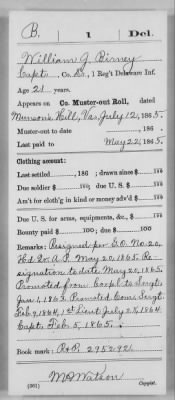 B. 1 Del.
William J. Birney
Capt., Co. , 1 Reg't Delaware Inf.
Age 21 years.
Appears on Co. Muster-out Roll, dated
Munson's Hill, Va, July 12, 1865.
Muster-out to date , 186 .
Last paid to May 22, 1865.
Clothing account:
Last settled , 186 ; drawn since $ 100
Due soldier $ 100; due U. S. $ 100
Am't for cloth'g in kind or money adv'd $ 100
Due U. S. for arms, equipments, &c., $ 100
Bounty paid $ 100; due $ 100
Remarks: Resigned per S.O. No. 20,
Hd. Qr. A.P. May 20, 1865. Re-
signation to date May 20, 1865.
Promoted from Corpl to Sergt.
Jan 1, 1863. Promoted Com. Sergt.
Feb 9, 1864, 1st Lieut July 28, 1864.
Capt. Feb 5, 1865.
Book mark: R&P. 295292
M D Watson
(361) Copyist.